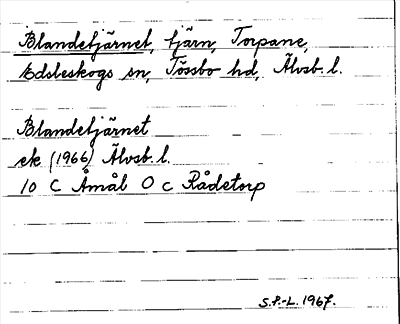 Blandetjärnet, tjärn, Torpane,
Edsleskogs sn, Tössbo hd, Älvsb. l.
Blandetjärnet
ek (1966) Älvsb. l.
10 C Åmål O c Rådetorp
S.F.-L. 1967.